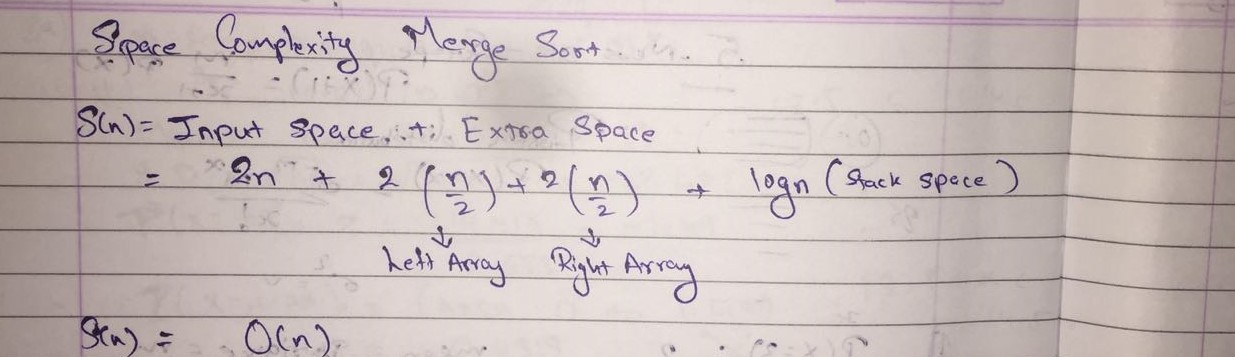 Space Complexity Merge Sort.
S(n) = Input space + Extra Space
= 2n + 2 (n/2) + 2 (n/2) + logn (Stack space)
↓ ↓
Left Array Right Array
S(n) = O(n)